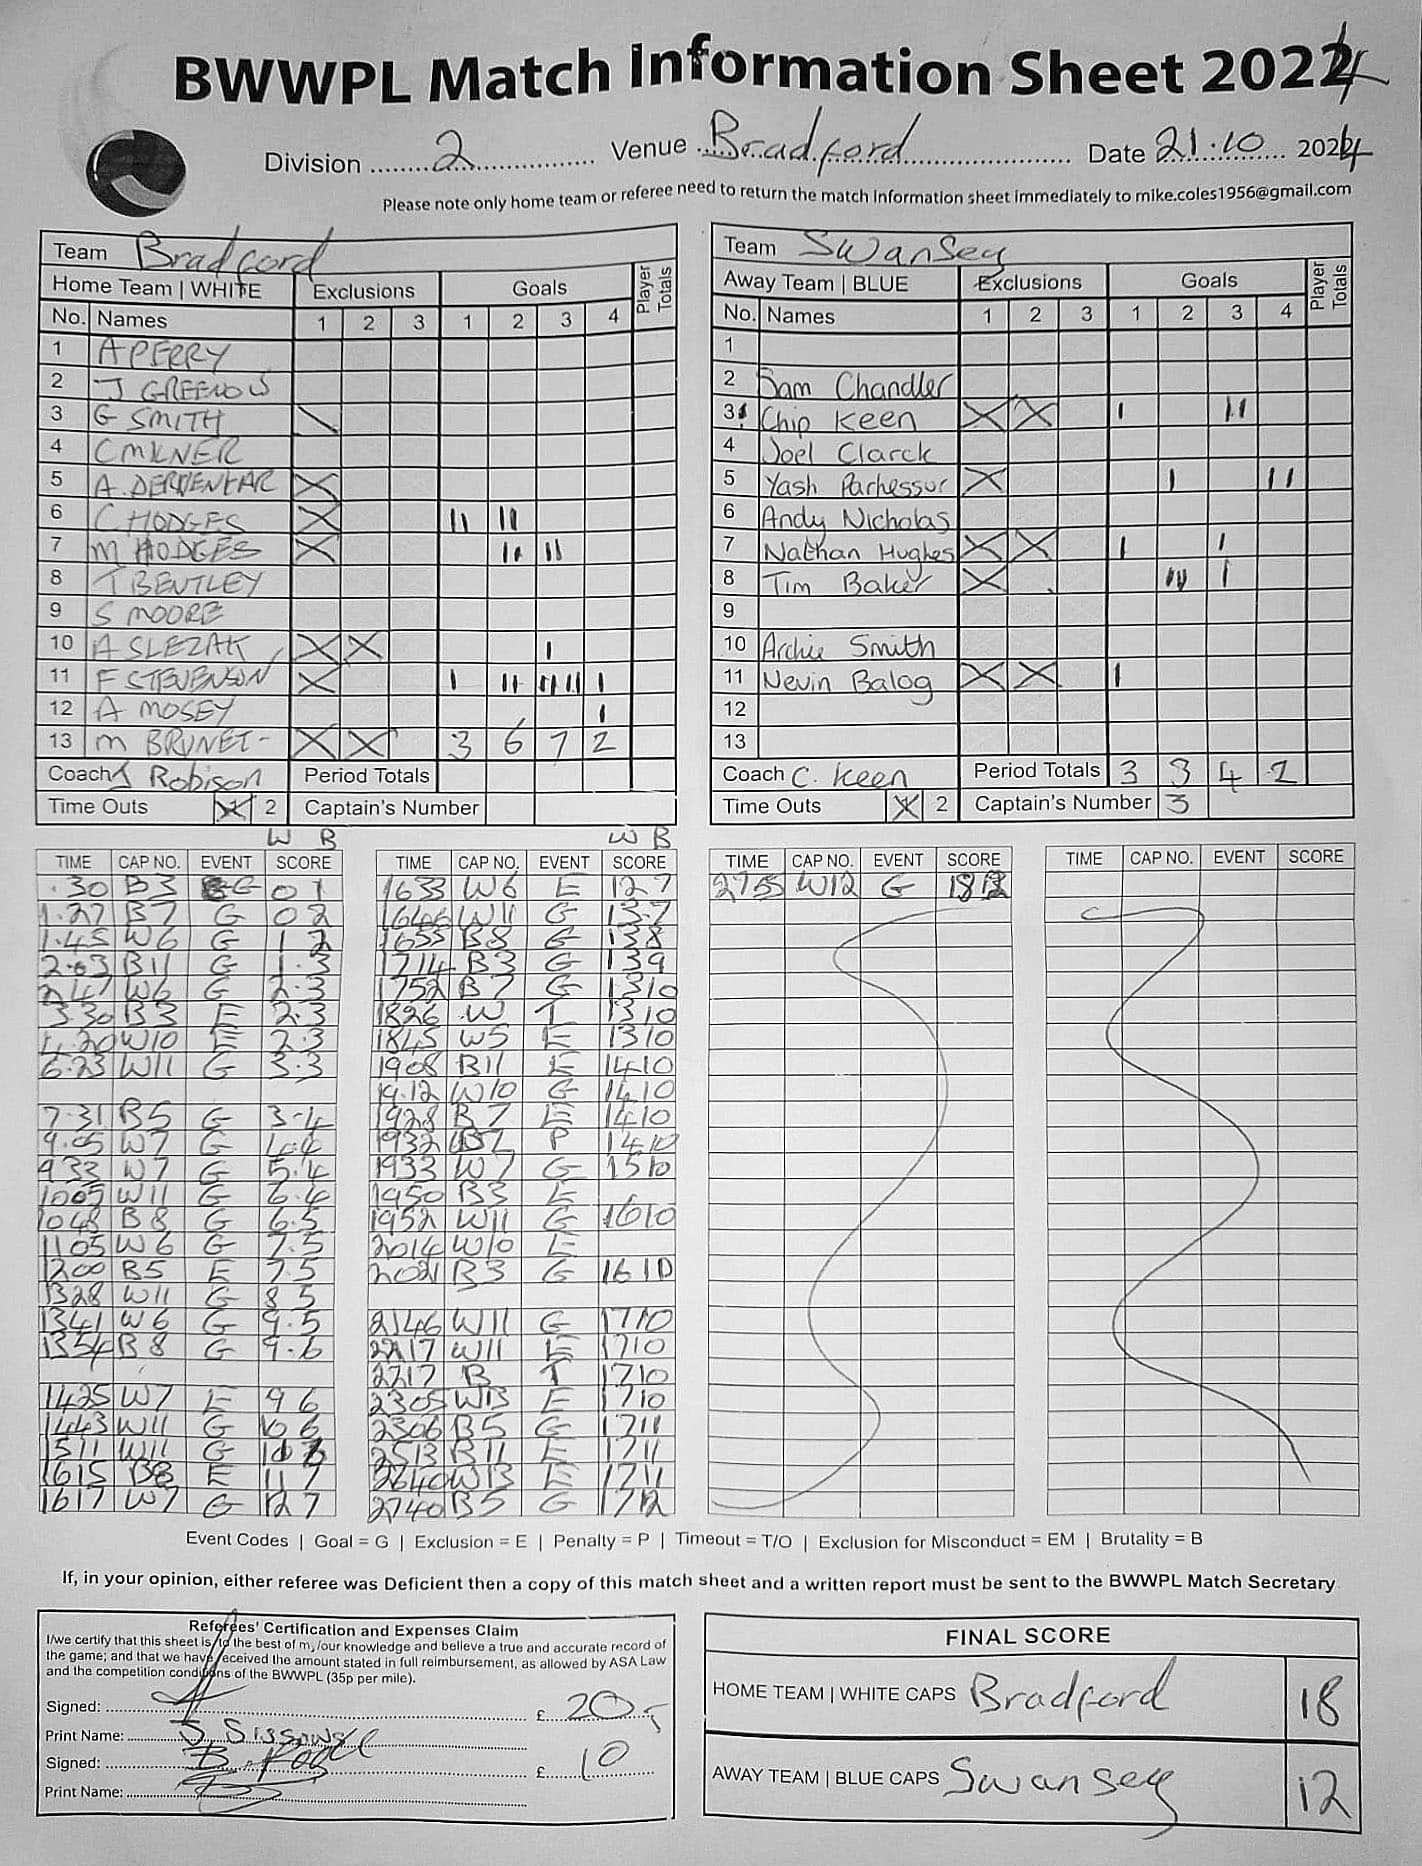 BWWPL Match Information Sheet 2024
Division 2 Venue Bradford Date 21.10 2024
Please note only home team or referee need to return the match information sheet immediately to mike.coles1956@gmail.com
Team Bradford
Home Team | WHITE Exclusions Goals Player Totals
No. Names 1 2 3 1 2 3 4
1 A PERRY
2 J GREENOW
3 G SMITH \
4 C MILNER
5 A. X
6 C HODGES X II II
7 M HODGES X II II
8 T BENTLEY
9 S MOORE
10 A SLEZAK X X I
11 F STEVENSON X I II IIIII I
12 A MOSEY I
13 M BRUNET- X X 3 6 7 2
Coach J Robison Period Totals
Time Outs 1 2 Captain's Number
Team Swansey
Away Team | BLUE Exclusions Goals Player Totals
No. Names 1 2 3 1 2 3 4
1
2 Sam Chandler
3 Chip Keen X X I II
4 Joel Clarck
5 Yash Parhessur X I II
6 Andy Nicholas
7 Nathan Hughes X X I I
8 Tim Baker X II I
9
10 Archie Smith
11 Nevin Balog X X I
12
13
Coach C. Keen Period Totals 3 3 4 2
Time Outs 1 2 Captain's Number 3
W B
TIME CAP NO. EVENT SCORE
.30 B3 G 0 1
1.27 B7 G 0 2
1.45 W6 G 1 2
2.03 B11 G 1.3
2.47 W6 G 2.3
3.30 B3 E 2.3
4.20 W10 E 2.3
6.23 W11 G 3.3
7.31 B5 G 3-4
9.05 W7 G 4.4
933 W7 G 5.4
1005 W11 G 6.4
1048 B8 G 6.5
1105 W6 G 7.5
1200 B5 E 7.5
1328 W11 G 8 5
1341 W6 G 9.5
1354 B8 G 9.6
1425 W7 E 9 6
1443 W11 G 10 6
1511 W11 G
1615 B8 E 11 7
1617 W7 G 12 7
W B
TIME CAP NO. EVENT SCORE
1633 W6 E 12 7
1646 W11 G 13.7
1655 B8 G 138
1714 B3 G 139
1752 B7 G 1310
1826 W T 1310
1845 W5 E 1310
1908 B11 E 1410
19.12 W10 G 1410
1928 B7 E 1410
1932 P 1410
1933 W7 G 1510
1950 B3 E
1952 W11 G 1610
2014 W10 E
2021 B3 G 1610
2146 W11 G 1710
2217 W11 E 1710
2217 B T 1710
2305 W13 E 1710
2306 B5 G 1711
2513 B11 E 1711
2640 W13 E 1711
2740 B5 G 1712
TIME CAP NO. EVENT SCORE
2755 W12 G 1812
TIME CAP NO. EVENT SCORE
Event Codes | Goal = G | Exclusion = E | Penalty = P | Timeout = T/O | Exclusion for Misconduct = EM | Brutality = B
If, in your opinion, either referee was Deficient then a copy of this match sheet and a written report must be sent to the BWWPL Match Secretary
Referees' Certification and Expenses Claim
I/we certify that this sheet is, to the best of my/our knowledge and believe a true and accurate record of
the game; and that we have received the amount stated in full reimbursement, as allowed by ASA Law
and the competition conditions of the BWWPL (35p per mile).
Signed: £ 20
Print Name: S.
Signed: £ 10
Print Name:
FINAL SCORE
HOME TEAM | WHITE CAPS Bradford 18
AWAY TEAM | BLUE CAPS Swansey 12